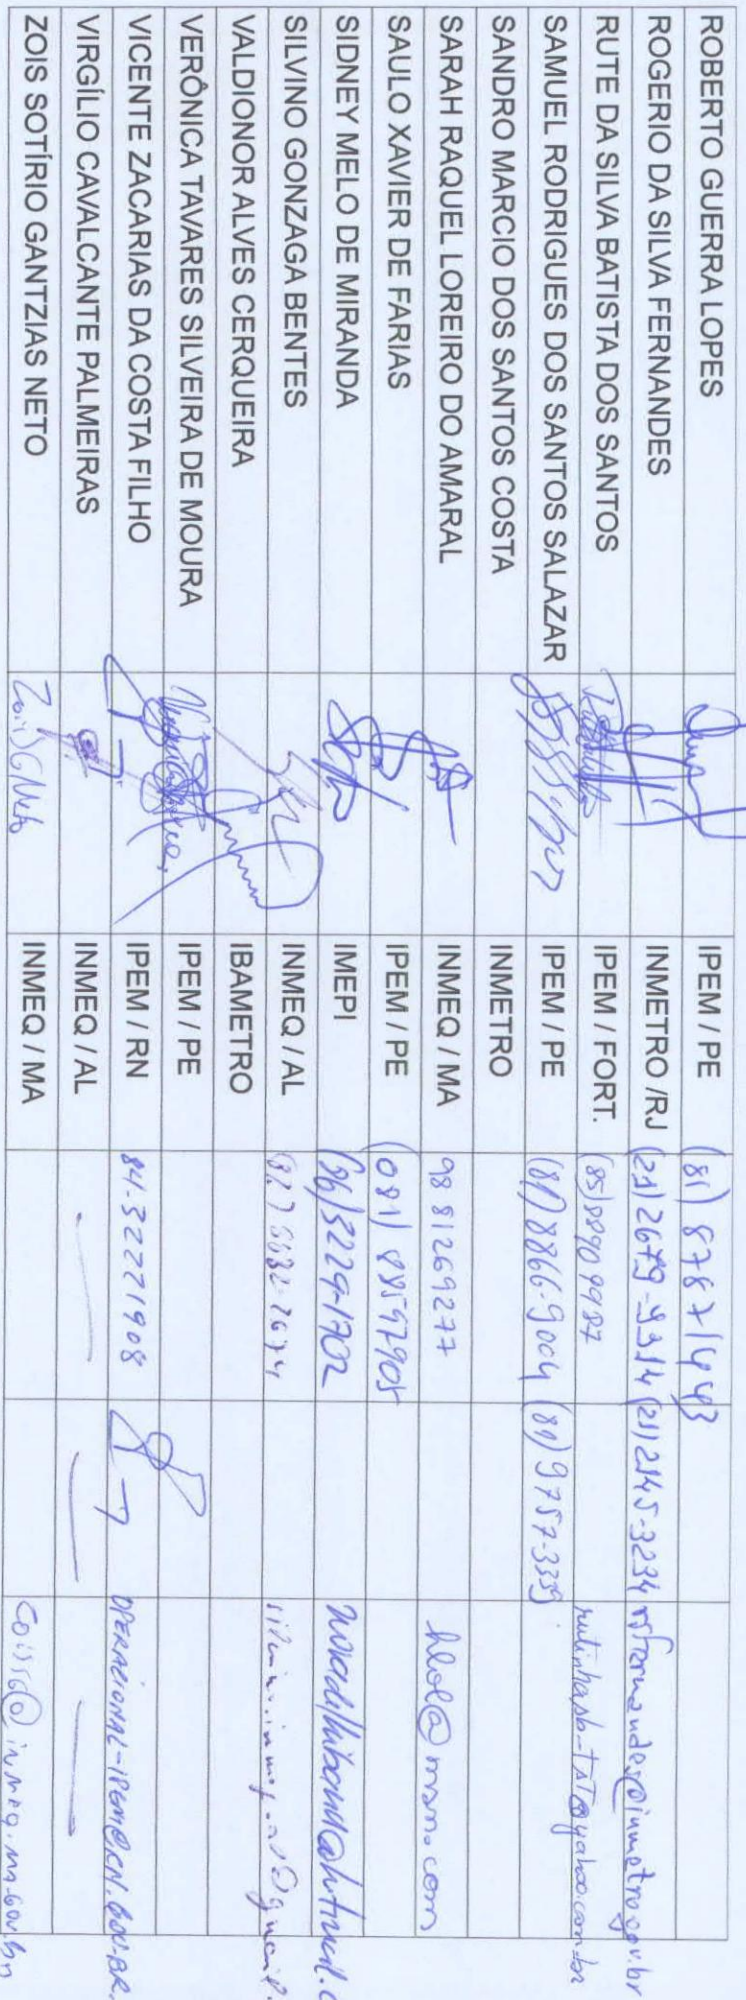 ROBERTO GUERRA LOPES IPEM / PE (81) 87871443
ROGERIO DA SILVA FERNANDES INMETRO /RJ (21) 2679-9314 (21) 2145-3234 rsfernandes@inmetro.gov.br
RUTE DA SILVA BATISTA DOS SANTOS IPEM / FORT. (85) 88909987
SAMUEL RODRIGUES DOS SANTOS SALAZAR IPEM / PE (81) 8866-9004 (81) 9757-3339
SANDRO MARCIO DOS SANTOS COSTA INMETRO
SARAH RAQUEL LOREIRO DO AMARAL INMEQ / MA 98 81269277
SAULO XAVIER DE FARIAS IPEM / PE (081) 88597905
SIDNEY MELO DE MIRANDA IMEPI (86) 3229-1702
SILVINO GONZAGA BENTES INMEQ / AL
VALDIONOR ALVES CERQUEIRA IBAMETRO
VERÔNICA TAVARES SILVEIRA DE MOURA IPEM / PE
VICENTE ZACARIAS DA COSTA FILHO IPEM / RN 84-32221908 OPERACIONAL-IPEM@RN.GOV.BR.
VIRGÍLIO CAVALCANTE PALMEIRAS INMEQ / AL
ZOIS SOTÍRIO GANTZIAS NETO Zois G Neto INMEQ / MA